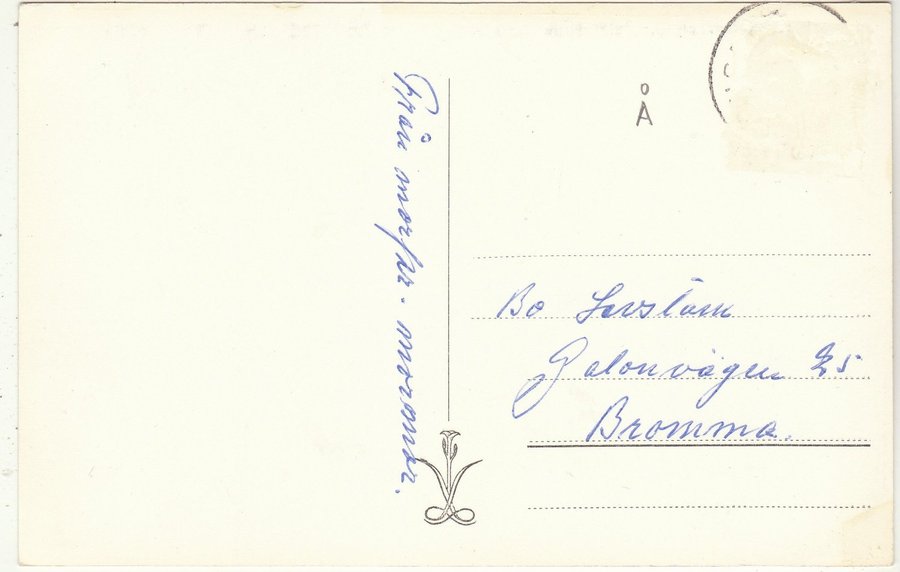 Från morfar - mormor.
Å
Bo
Galonvägen 25
Bromma.